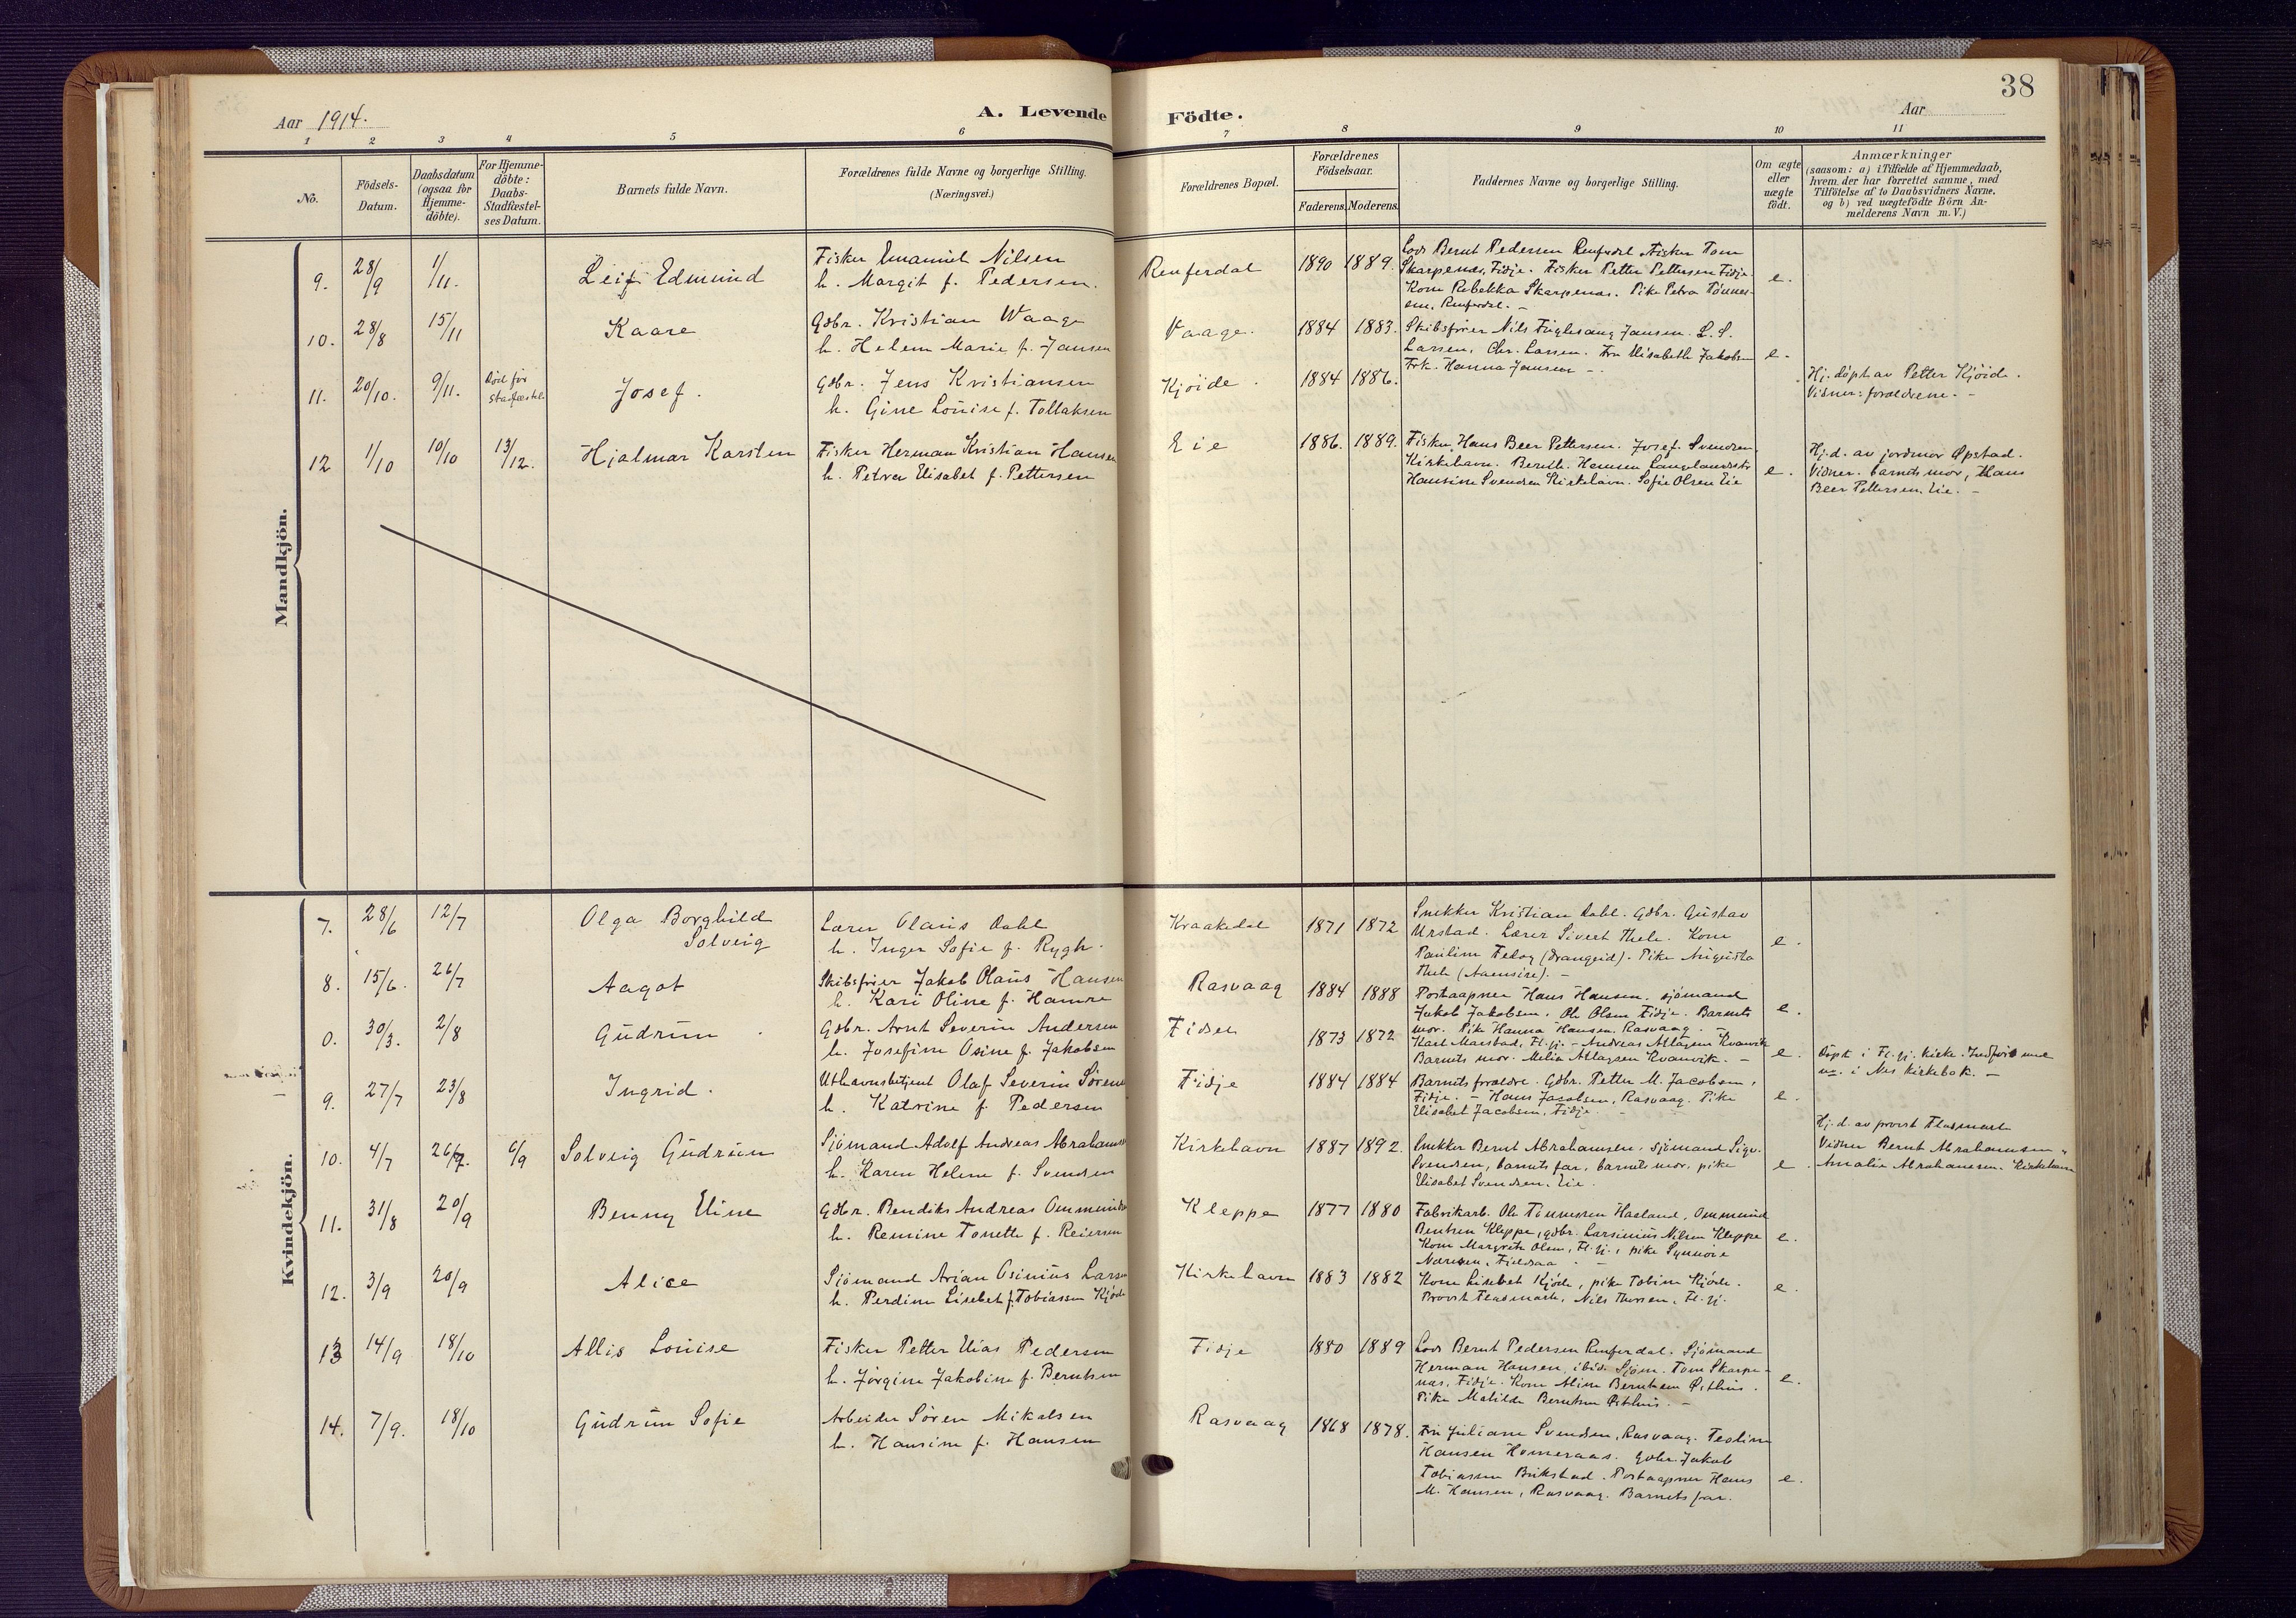 38
Aar 1914.
A. Levende Födte.
Aar
1 2 3 4 5 6 7 8 9 10 11
No.
Födsels-
Datum.
Daabsdatum
(ogsaa for
Hjemme-
döbte).
For Hjemme-
döbte:
Daabs-
Stadfæstel-
ses Datum.
Barnets fulde Navn.
Forældrenes fulde Navne og borgerlige Stilling.
(Næringsvei.)
Forældrenes Bopæl.
Forældrenes
Födselsaar.
Faderens. Moderens.
Faddernes Navne og borgerlige Stilling.
Om ægte
eller
uægte
födt.
Anmærkninger
(saasom: a) i Tilfælde af Hjemmedaab,
hvem der har forrettet samme, med
Tilföielse af to Daabsvidners Navne.
og b) ved uægtefödte Börn An-
melderens Navn m. V.)
Mandkjön.
9. 28/9 1/11. Leif Edmund
Fisker Emanuel Nilsen
h. Margit f. Pedersen.
Renferdal 1890 1889.
Lods Bernt Pedersen Renferdal. Fisker Tom
Skarpenæs, Fidje. Fisker Petter Pettersen Fidje.
Kone Rebekka Skarpenæs. Pike Petra Tönnes-
sen, Renferdal. –
e.
10. 28/8 15/11 Kaare
Gdbr. Kristian Waage
h. Helene Marie f. Jansen
Vaage. 1884 1883.
Skibsfører Nils Fuglesang Jansen. L. S.
Larsen, Chr. Larsen. Fru Elisabeth Jakobsen
Frk. Hanna Jansen –.
e.
11. 20/10. 9/11. Død før
stadfæstel. Josef.
Gdbr. Jens Kristiansen
h. Gine Louise f. Tollaksen
Kjöide. 1884 1886.
Hj. döpt av Petter Kjöide.
Vidner: forældrene. –
12 1/10 10/10 13/12. Hjalmar Karsten
Fisker Herman Kristian Hansen
h. Petra Elisabet f. Pettersen
Eie 1886. 1889.
Fisker Hans Beer Pettersen. Josef Svendsen,
Kirkehavn. Berith Hansen
Hansine Svendsen Kirkehavn. Sofie Olsen Eie
e.
Hj. d. av jordmor Opstad.
Vidner. barnets mor, Hans
Beer Pettersen. Eie. –
Kvindekjön.
7. 28/6 12/7 Olga Borghild
Solveig
Lærer Olaus Dahl
h. Inger Sofie f. Rygh.
Kraakedal 1871 1872
Snekker Kristian Dahl. Gdbr. Gustav
Urstad. Lærer Sivert Thele. Kone
Pauline Fedog (Drangeid). Pike Augusta
Thele (Aaensire). –
e.
8. 15/6. 26/7 Aagot
Skibsfører Jakob Olaus Hansen
h. Kari Oline f. Hamre
Rasvaag 1884 1888
Postaapner Hans Hansen. sjömand
Jakob Jakobsen. Ole Olsen Fidje. Barnets
mor. Pike Hanna Hansen. Rasvaag. –
e.
0. 30/3. 2/8 Gudrun
Gdbr. Arnt Severin Andersen
h. Josefine Osine f. Jakobsen
Fidsel 1873 1872
Karl Marstad, Fl.fj. – Andreas Atlagsen Kvanvik
Barnets mor. Melia Atlagsen Kvanvik. –
e.
Döpt i Fl.fj. kirke. Indført med
no. i Nes kirkebok. –
9. 27/7 23/8 Ingrid.
Uthavnsbetjent Olaf Severin Sörens
h. Katrine f. Pedersen
Fidje 1884 1884
Barnets forældre. Gdbr. Petter M. Jacobsen,
Fidje. – Hans Jacobsen, Rasvaag. Pike
Elisabet Jacobsen, Fidje.
e.
10. 4/7 26/7. 6/9 Solveig Gudrun
Sjömand Adolf Andreas Abrahamsen
h. Karen Helene f. Svendsen
Kirkehavn 1887 1892.
Snekker Bernt Abrahamsen, sjömand Sigv.
Svendsen, barnets far, barnets mor, pike
Elisabet Svendsen. Eie.
e
Hj. d. av provst Flødmark
Vidner Bernt Abrahamsen
Amalie Abrahamsen. Kirkehavn
11. 31/8 20/9 Benny Eline
Gdbr. Bendiks Andreas Ommundsen
h. Remine Tonette f. Reiersen
Kleppe 1877 1880
Fabrikarb. Ole Tönnessen Haaland, Ommund
Bentsen Kleppe, gdbr. Larsinius Nilsen Kleppe
Kone Margrete Olsen, Fl.fj., pike Synnöve
e.
12. 3/9 20/9 Alice
Sjömand Arian Osinius Larsen
h. Perdine Lisebet f. Tobiassen Kjöde
Kirkehavn 1883 1882
Kone Lisebet Kjöde, pike Tobine Kjöde.
Provst Flødmark, Nils Thorsen, Fl.fj.
e.
13 14/9 18/10 Allis Louise
Fisker Petter Elias Pedersen
h. Jörgine Jakobine f. Berntsen
Fidje 1880 1889
Lods Bernt Pedersen Renferdal. Sjömand
Herman Hansen, ibid. Sjöm. Tom Skarpe-
næs, Fidje. Kone Aline Berntsen Östhus.
Pike Matilde Berntsen Östhus. –
e.
14. 7/9. 18/10 Gudrun Sofie
Arbeider Sören Mikalsen
h. Hansine f. Hansen
Rasvaag 1868 1878.
Fru Juliane Svendsen, Rasvaag. Teoline
Hansen Homeraas. gdbr. Jakob
Tobiassen Brikstad. Postaapner Hans
M. Hansen, Rasvaag. Barnets far.
e.